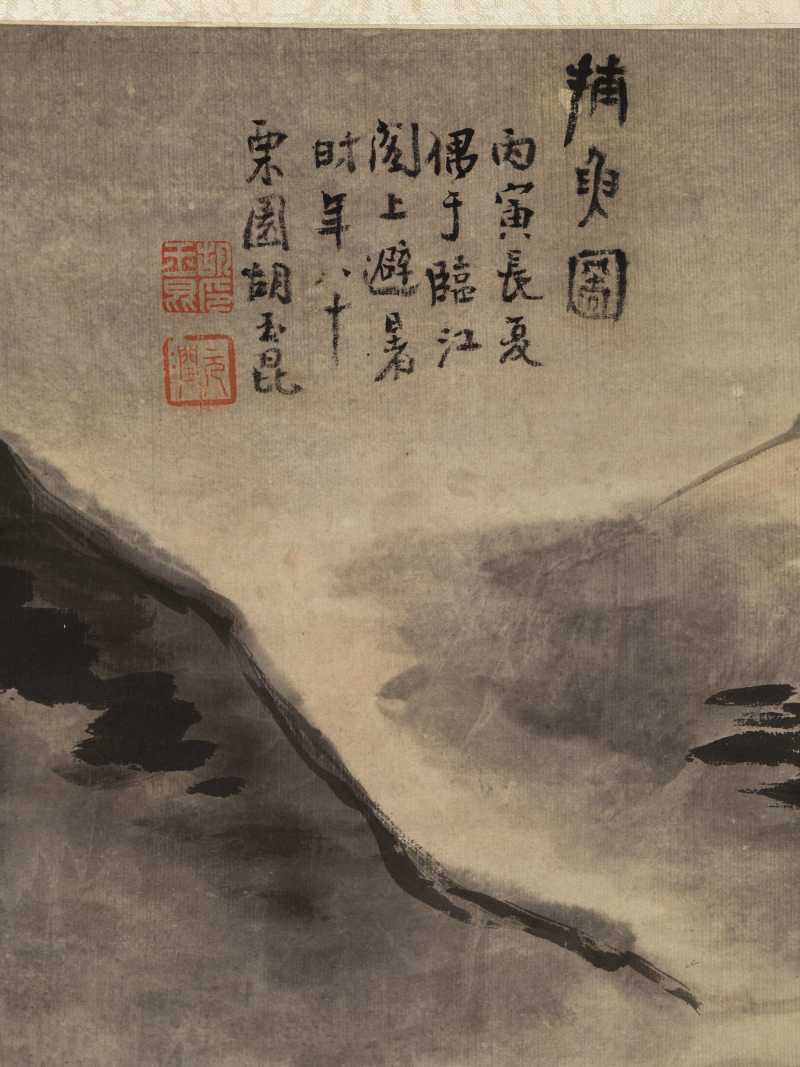 捕魚圖
丙寅長夏
偶于臨江
閣上避暑
时年八十
栗園胡玉昆
胡印玉昆
元潤